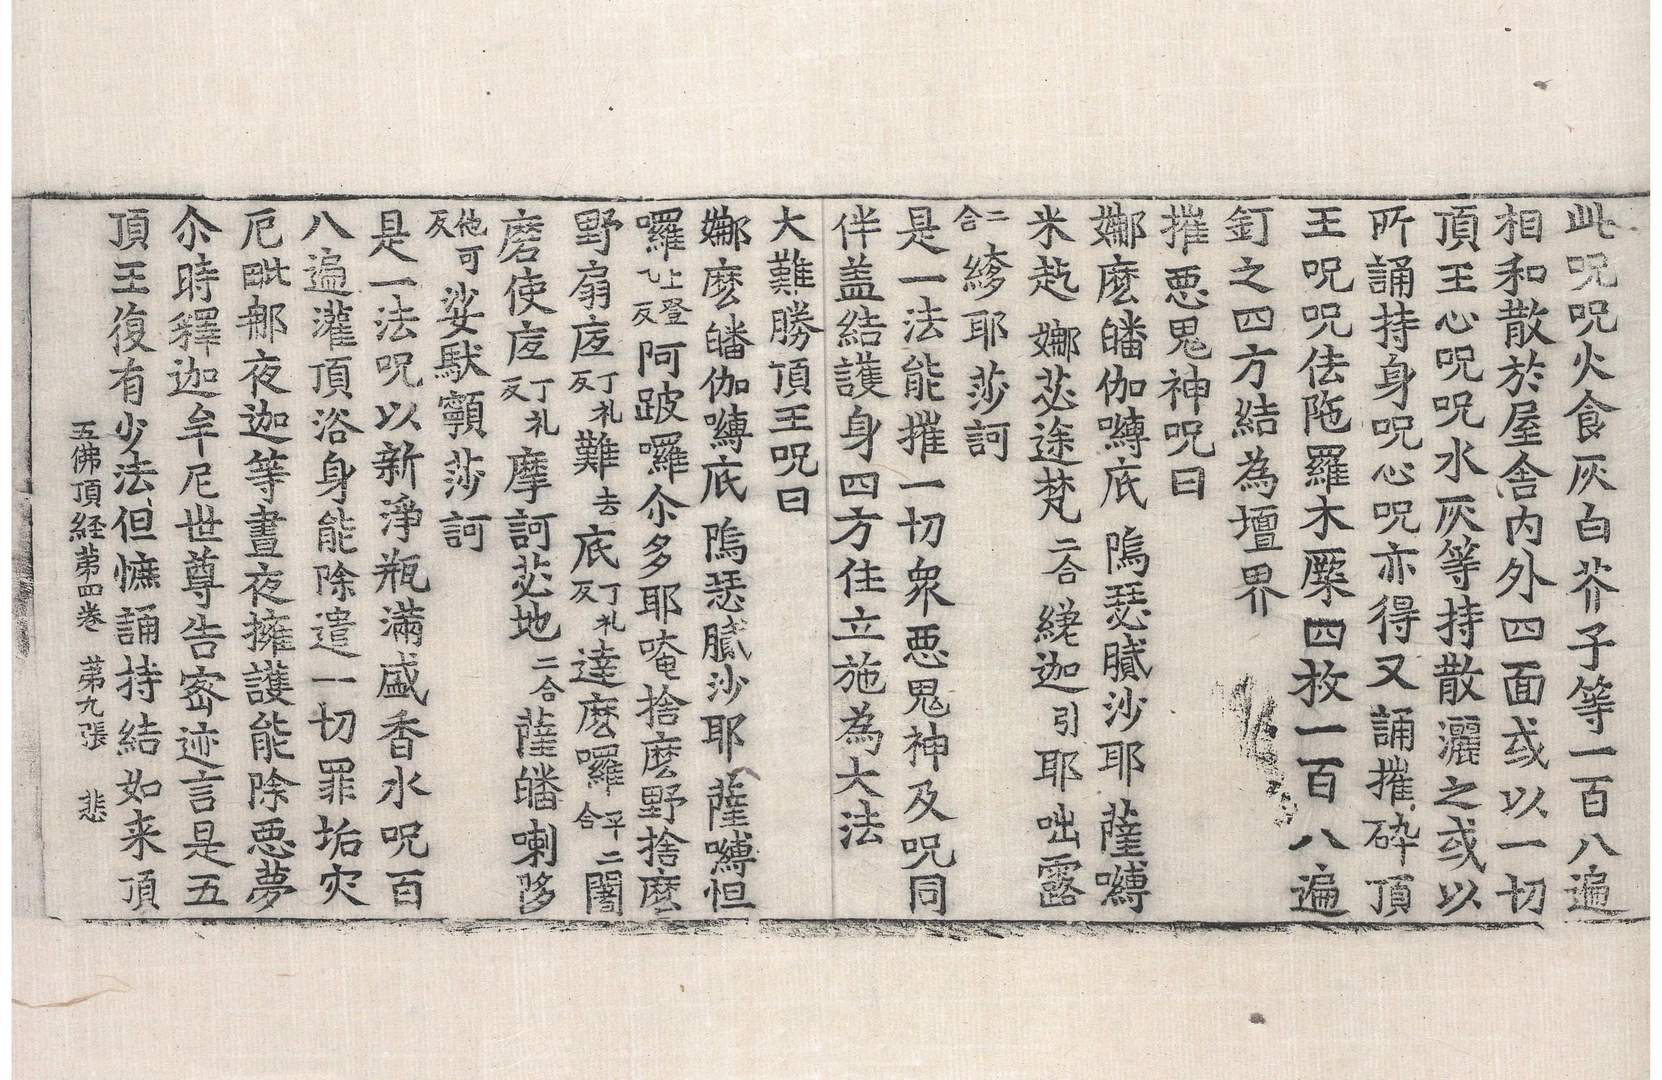 此呪呪火食灰白芥子等一百八遍
相和散於屋舍内外四面或以一切
頂王心呪呪水灰等持散灑之或以
所誦持身呪心呪亦得又誦摧碎頂
王呪呪佉陁羅木橜四枚一百八遍
釘之四方結為壇界
摧惡鬼神呪曰
娜麽皤伽嚩底 隖瑟膩沙耶 薩嚩
米趂 娜苾途梵二合 繼迦引耶 咄露
二合縿耶莎訶
是一法能摧一切衆惡鬼神及呪同
伴盖結護身四方住立施為大法
大難勝頂王呪曰
娜麽皤伽嚩底 隖瑟膩沙耶 薩嚩怛
囉上登乁反阿跛囉尒多耶唵捨麽野捨麽
野扇㡳丁礼反難去底丁礼反達麽囉平二合闇
磨使㡳丁礼反摩訶苾地二合薩皤喇哆
他可反娑馱顊莎訶
是一法呪以新淨瓶滿盛香水呪百
八遍灌頂浴身能除遣一切罪垢灾
厄毗那夜迦等晝夜擁護能除惡夢
尒時釋迦牟尼世尊告密迹言是五
頂王復有少法但懺誦持結如来頂
五佛頂経苐四卷 苐九張 悲